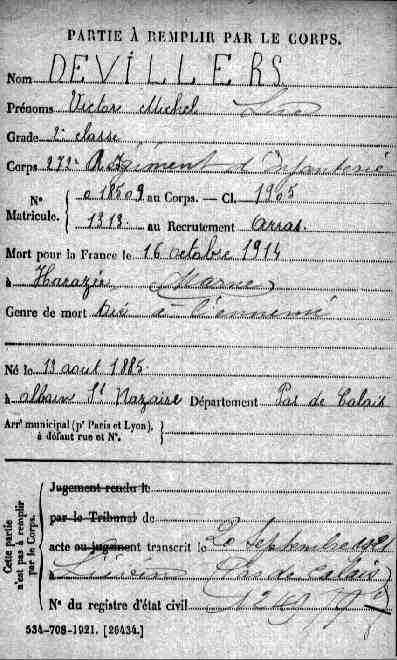 PARTIE À REMPLIR PAR LE CORPS.
Nom DEVILLERS
Prénoms Victor Michel
Grade 2e classe
Corps 272e Régiment d'Infanterie
N° Matricule. { 018509 au Corps. — Cl. 1905
1313 au Recrutement Arras.
Mort pour la France le 16 octobre 1914
à Harazée (Marne)
Genre de mort tué à l'ennemi
Né le 13 août 1885
à Albain St Nazaire Département Pas de Calais
Arrt municipal (pr Paris et Lyon), à défaut rue et N°. }
Cette partie n'est pas à remplir par le Corps.
Jugement rendu le
par le Tribunal de
acte ou jugement transcrit le 20 septembre 1921
à Liévin (Pas de Calais)
N° du registre d'état civil
534-708-1921. [26434.]